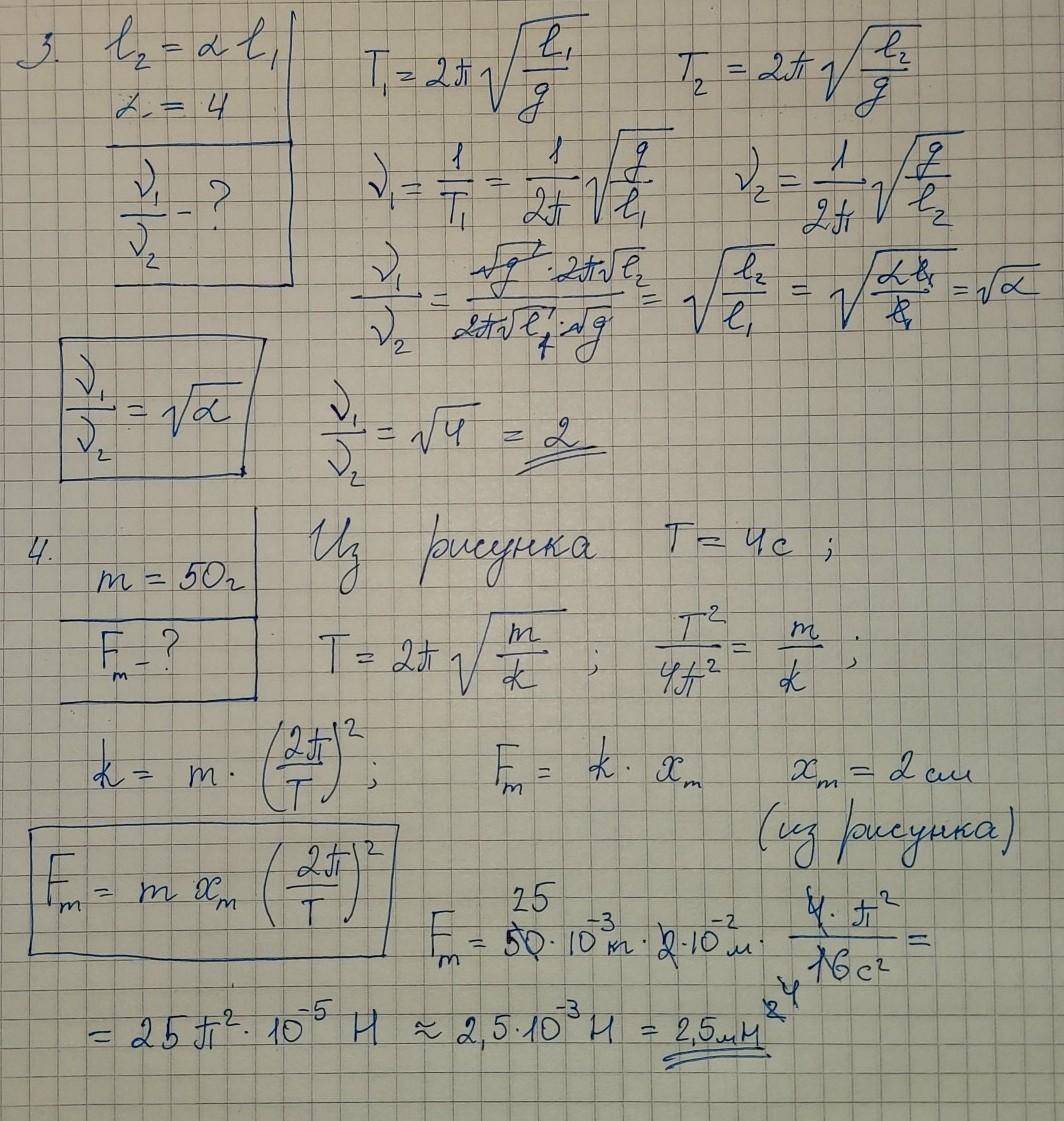 3. l₂ = α l₁
α = 4
ν₁/ν₂ - ?
T₁ = 2π√(l₁/g) T₂ = 2π√(l₂/g)
ν₁ = 1/T₁ = 1/2π √(g/l₁) ν₂ = 1/2π √(g/l₂)
ν₁/ν₂ = √g · 2π√l₂ / 2π√l₁ · √g = √(l₂/l₁) = √(αl₁/l₁) = √α
ν₁/ν₂ = √α ν₁/ν₂ = √4 = 2
4. m = 50г
Fₘ - ?
Из рисунка T = 4с ;
T = 2π√(m/k) ; T²/4π² = m/k ;
k = m · (2π/T)² ; Fₘ = k · xₘ xₘ = 2 см
(из рисунка)
Fₘ = m xₘ (2π/T)²
25
Fₘ = 50 · 10⁻³ кг · 2 · 10⁻² м · 4 · π²/16 с² =
4
= 25 π² · 10⁻⁵ Н ≈ 2,5 · 10⁻³ Н = 2,5 мН